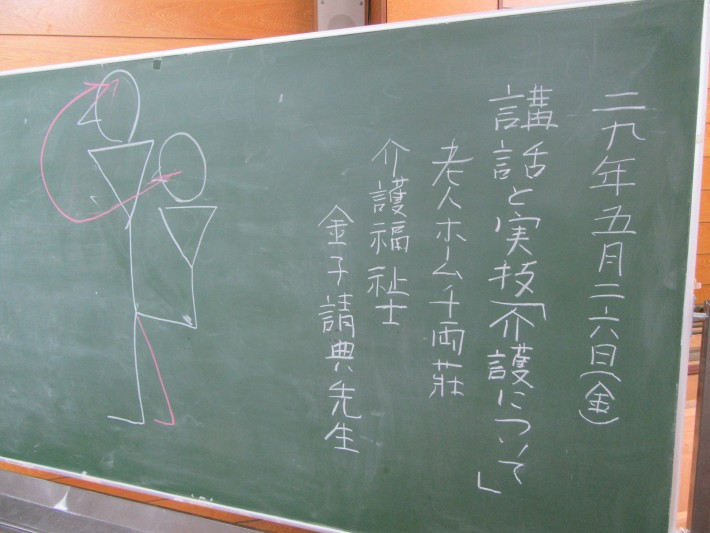 二九年五月二六日(金)
講話と実技「介護について」
老人ホーム千両荘
介護福祉士
金子請典先生